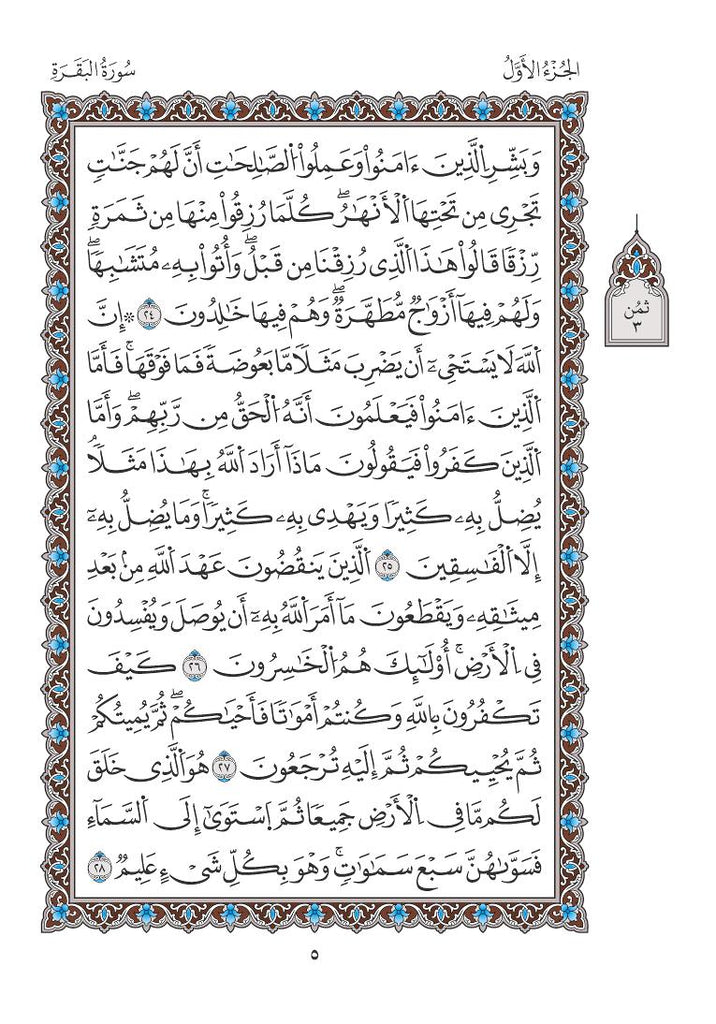 الجُزْءُ الأَوَّلُ
سُورَةُ البَقَرَةِ
وَبَشِّرِ اِ۬لذِينَ ءَامَنُواْ وَعَمِلُواْ اُ۬لصَّٰلِحَٰتِ أَنَّ لَهُمْ جَنَّٰتٖ
تَجْرِي مِن تَحْتِهَا اَ۬لْأَنْهَٰرُۖ كُلَّمَا رُزِقُواْ مِنْهَا مِن ثَمَرَةٖ
رِّزْقاٗ قَالُواْ هَٰذَا اَ۬لذِي رُزِقْنَا مِن قَبْلُۖ وَأُتُواْ بِهِۦ مُتَشَٰبِهاٗۖ
وَلَهُمْ فِيهَا أَزْوَٰجٞ مُّطَهَّرَةٞۖ وَهُمْ فِيهَا خَٰلِدُونَ ٢٤ ۞إِنَّ
اَ۬للَّهَ لَا يَسْتَحْيِۦٓ أَن يَضْرِبَ مَثَلاٗ مَّا بَعُوضَةٗ فَمَا فَوْقَهَاۚ فَأَمَّا
اَ۬لذِينَ ءَامَنُواْ فَيَعْلَمُونَ أَنَّهُ اُ۬لْحَقُّ مِن رَّبِّهِمْۖ وَأَمَّا
اَ۬لذِينَ كَفَرُواْ فَيَقُولُونَ مَاذَا أَرَادَ اَ۬للَّهُ بِهَٰذَا مَثَلاٗۘ
يُضِلُّ بِهِۦ كَثِيراٗ وَيَهْدِي بِهِۦ كَثِيراٗۚ وَمَا يُضِلُّ بِهِۦٓ
إِلَّا اَ۬لْفَٰسِقِينَ ٢٥ اَ۬لذِينَ يَنقُضُونَ عَهْدَ اَ۬للَّهِ مِنۢ بَعْدِ
مِيثَٰقِهِۦ وَيَقْطَعُونَ مَا أَمَرَ اَ۬للَّهُ بِهِۦٓ أَن يُوصَلَ وَيُفْسِدُونَ
فِي اِ۬لْأَرْضِۚ أُوْلَٰٓئِكَ هُمُ اُ۬لْخَٰسِرُونَ ٢٦ كَيْفَ
تَكْفُرُونَ بِاللَّهِ وَكُنتُمْ أَمْوَٰتاٗ فَأَحْيَٰكُمْۖ ثُمَّ يُمِيتُكُمْ
ثُمَّ يُحْيِيكُمْ ثُمَّ إِلَيْهِ تُرْجَعُونَ ٢٧ هُوَ اَ۬لذِي خَلَقَ
لَكُم مَّا فِي اِ۬لْأَرْضِ جَمِيعاٗ ثُمَّ اَ۪سْتَوَىٰٓ إِلَى اَ۬لسَّمَآءِ
فَسَوَّىٰهُنَّ سَبْعَ سَمَٰوَٰتٖۚ وَهْوَ بِكُلِّ شَيْءٍ عَلِيمٞ ٢٨
ثُمُن
٣
٥